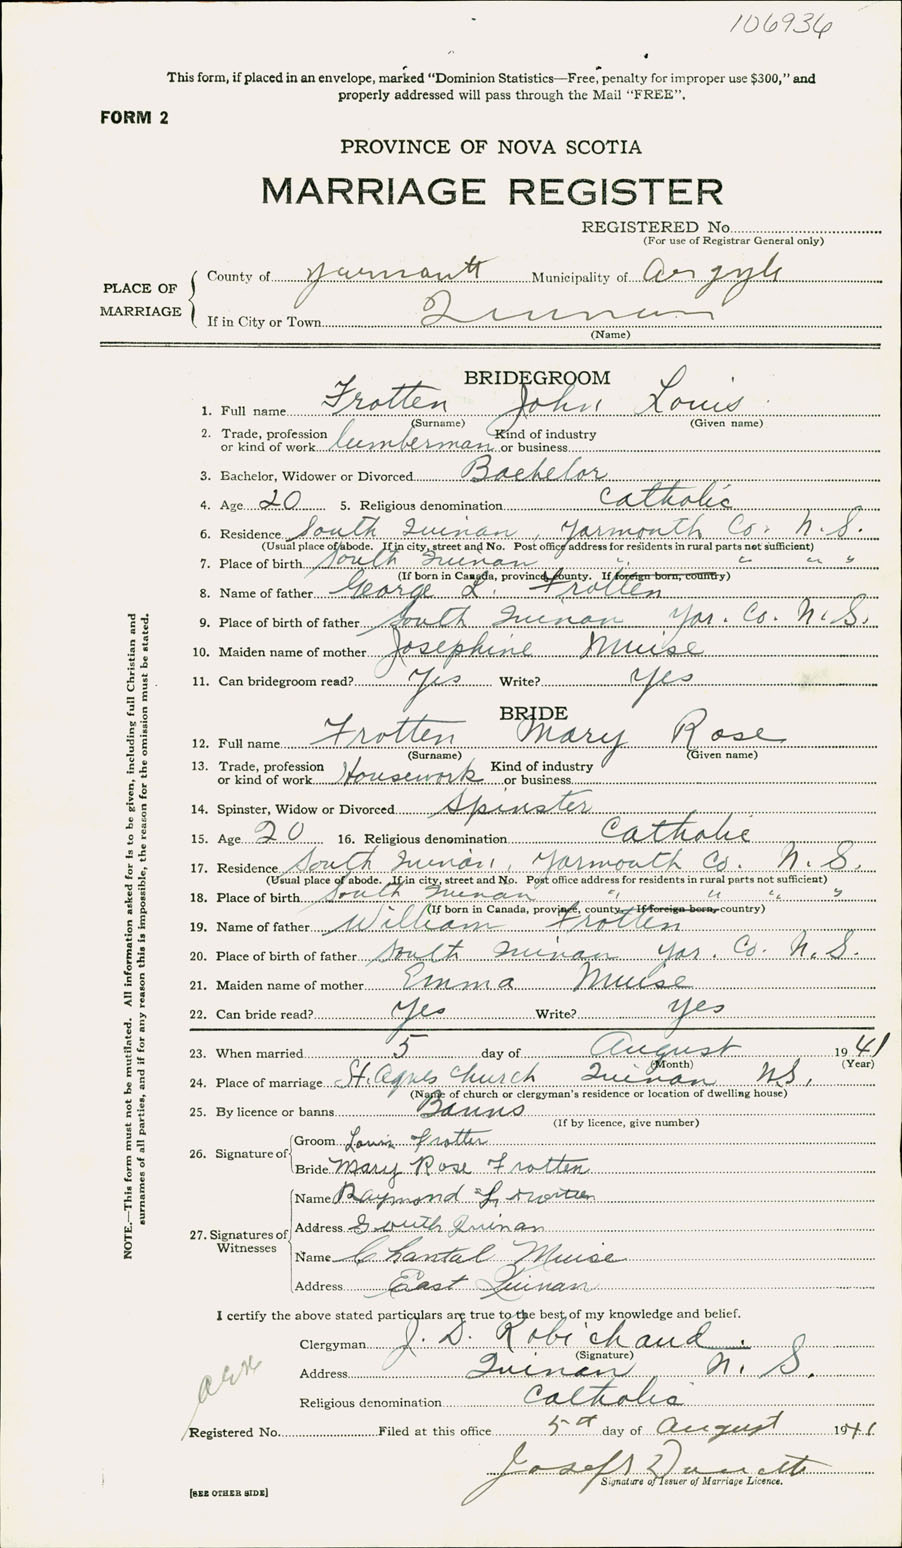 106936
This form, if placed in an envelope, marked “Dominion Statistics—Free, penalty for improper use $300,” and
properly addressed will pass through the Mail “FREE”.
FORM 2
PROVINCE OF NOVA SCOTIA
MARRIAGE REGISTER
REGISTERED No.
(For use of Registrar General only)
PLACE OF MARRIAGE
County of Yarmouth Municipality of Argyle
If in City or Town Quinan
(Name)
BRIDEGROOM
1. Full name Frotten John Louis
(Surname) (Given name)
2. Trade, profession or kind of work lumberman Kind of industry or business
3. Bachelor, Widower or Divorced Bachelor
4. Age 20 5. Religious denomination Catholic
6. Residence South Quinan, Yarmouth Co. N. S.
(Usual place of abode. If in city, street and No. Post office address for residents in rural parts not sufficient)
7. Place of birth South Quinan " " " "
(If born in Canada, province, county. If foreign born, country)
8. Name of father George L. Frotten
9. Place of birth of father South Quinan Yar. Co. N. S.
10. Maiden name of mother Josephine Muise
11. Can bridegroom read? Yes Write? Yes
BRIDE
12. Full name Frotten Mary Rose
(Surname) (Given name)
13. Trade, profession or kind of work Housework Kind of industry or business
14. Spinster, Widow or Divorced Spinster
15. Age 20 16. Religious denomination Catholic
17. Residence South Quinan, Yarmouth Co. N. S.
(Usual place of abode. If in city, street and No. Post office address for residents in rural parts not sufficient)
18. Place of birth South Quinan " " " "
(If born in Canada, province, county. If foreign born, country)
19. Name of father William Frotten
20. Place of birth of father South Quinan Yar. Co. N. S.
21. Maiden name of mother Emma Muise
22. Can bride read? Yes Write? Yes
23. When married 5 day of August 1941
(Month) (Year)
24. Place of marriage St. Agnes Church Quinan N.S.
(Name of church or clergyman's residence or location of dwelling house)
25. By licence or banns Banns
(If by licence, give number)
26. Signature of Groom Louis Frotten
Bride Mary Rose Frotten
27. Signatures of Witnesses Name Raymond Frotten
Address South Quinan
Name Chantal Muise
Address East Quinan
I certify the above stated particulars are true to the best of my knowledge and belief.
Clergyman J. D. Robichaud
(Signature)
Address Quinan N. S.
Religious denomination Catholic
Registered No. Filed at this office 5th day of August 1941
Joseph
Signature of Issuer of Marriage Licence.
[SEE OTHER SIDE]
NOTE.—This form must not be mutilated. All information asked for is to be given, including full Christian and
surnames of all parties, and if for any reason this is impossible, the reason for the omission must be stated.